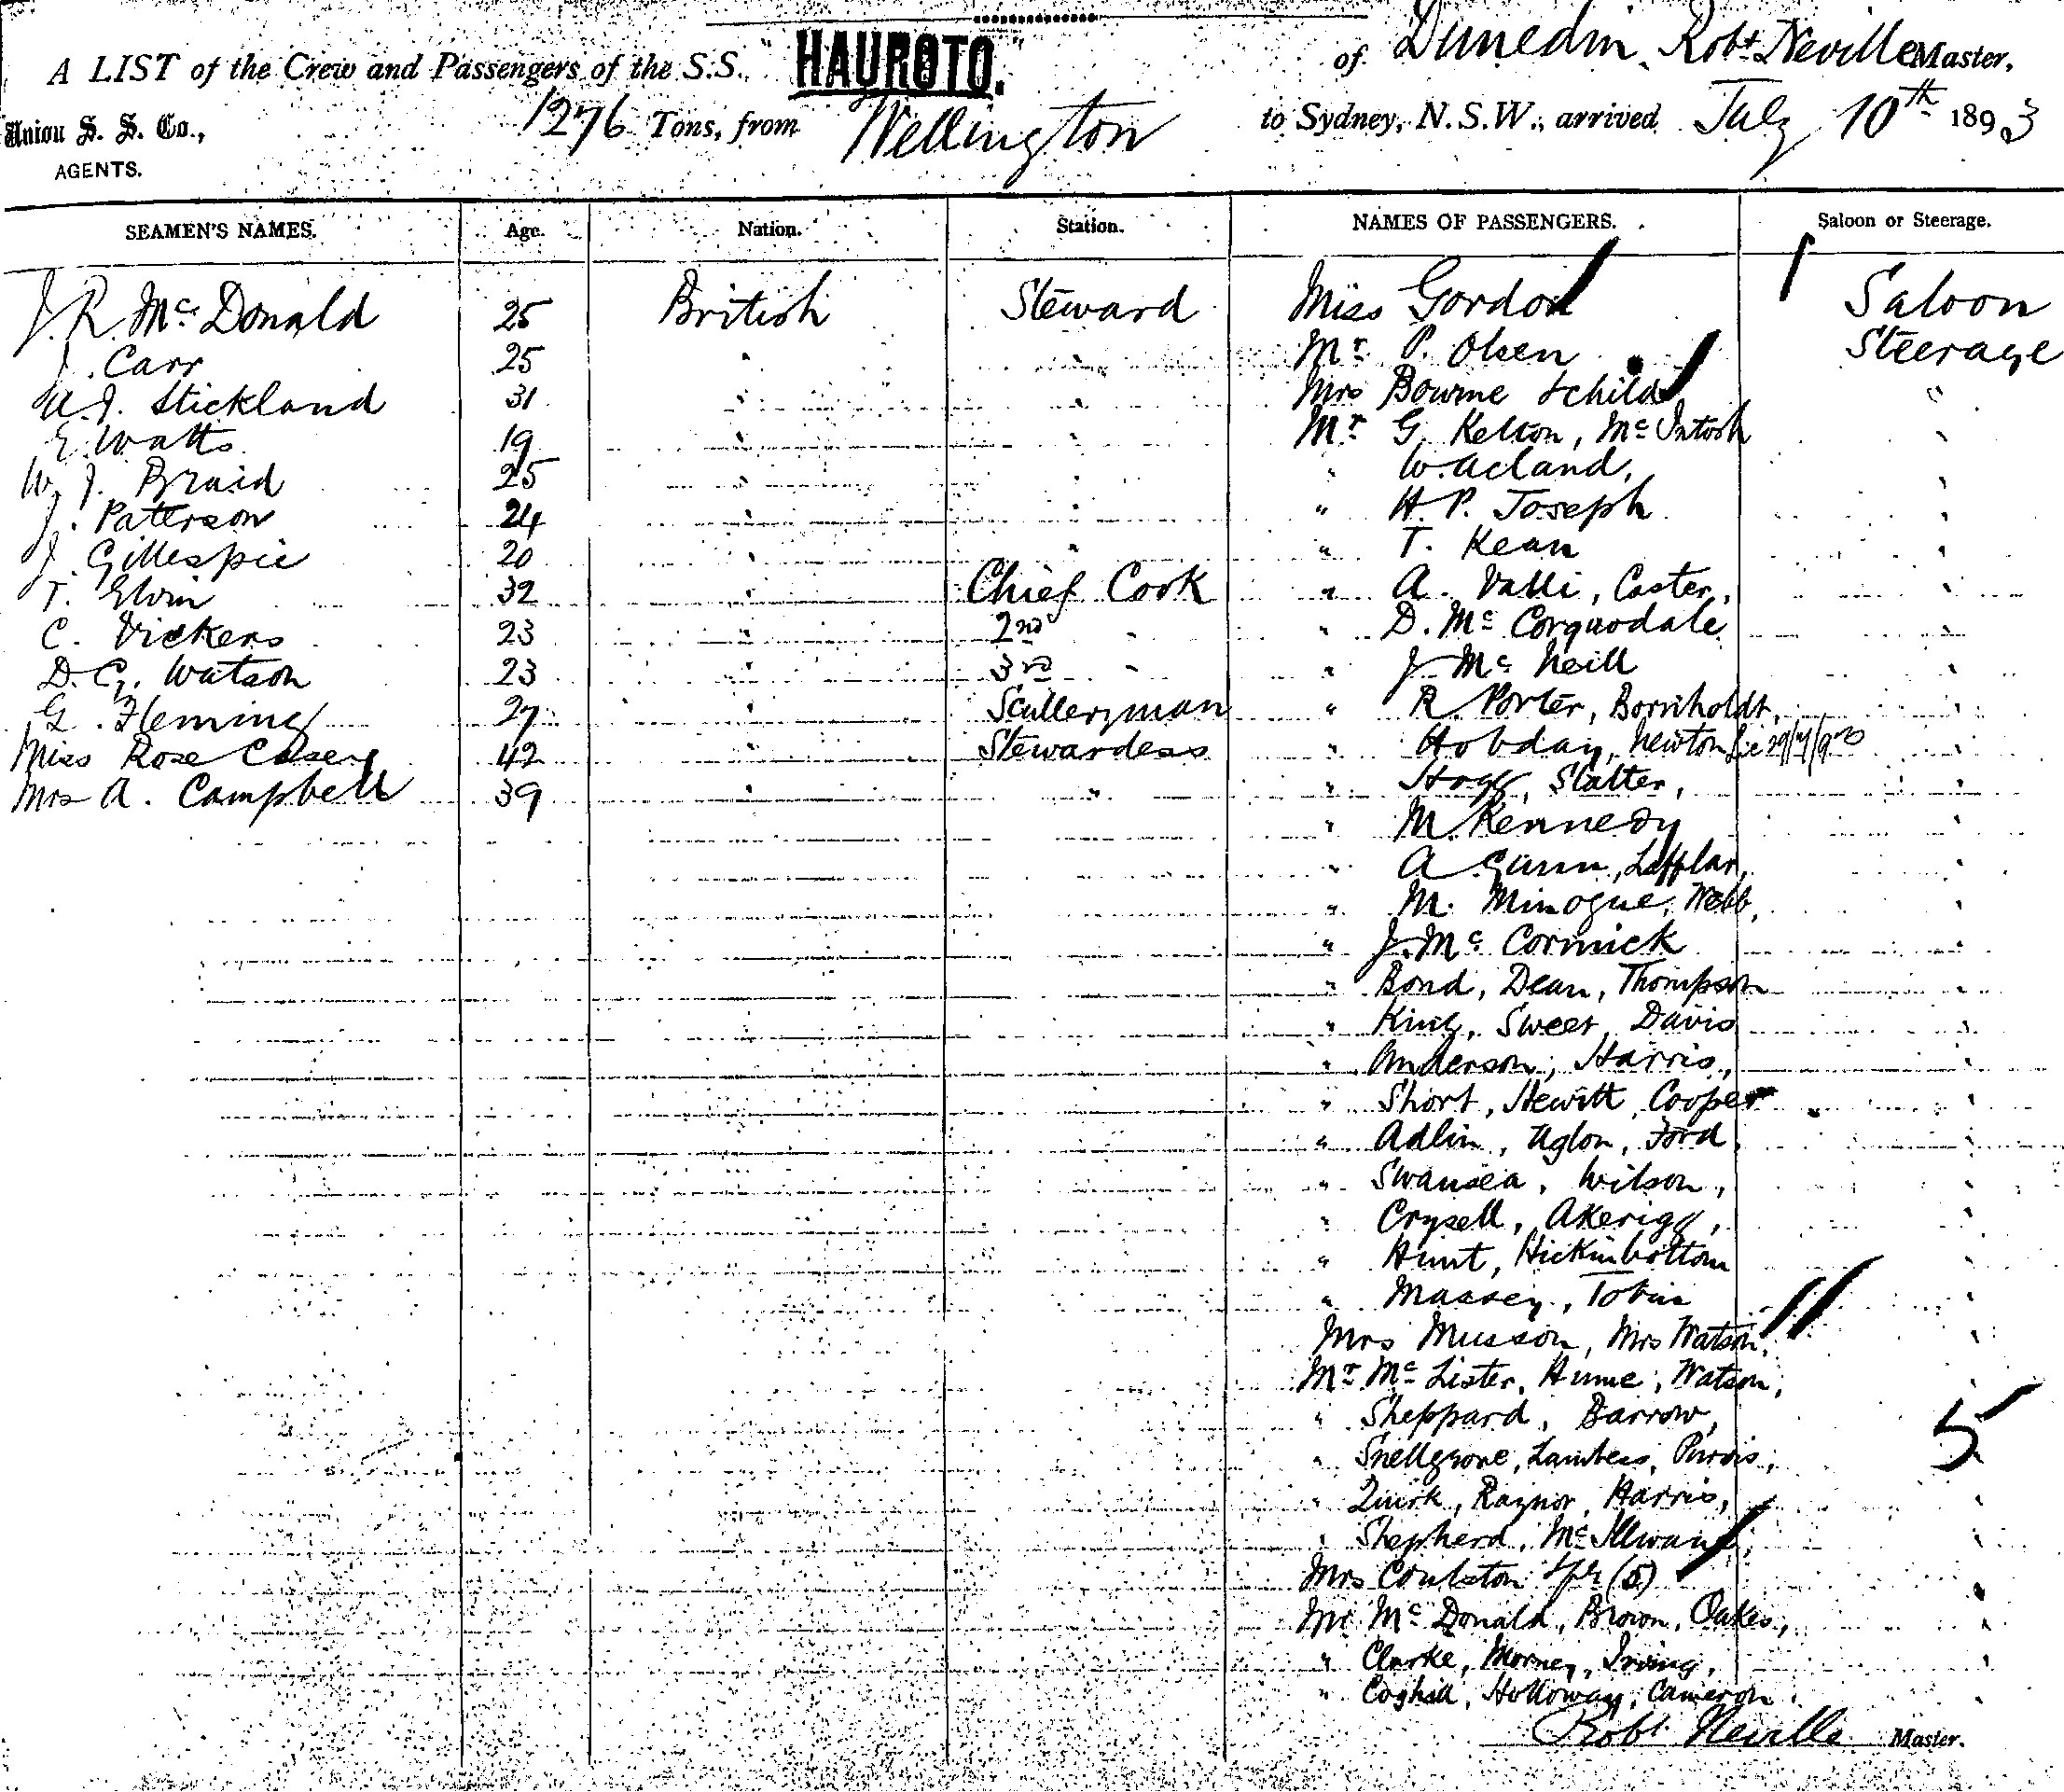 A LIST of the Crew and Passengers of the S.S. HAUROTO. of Dunedin, Robt. Neville Master,
Union S. S. Co., 1276 Tons, from Wellington to Sydney, N.S.W., arrived July 10th 1893
AGENTS.
SEAMEN'S NAMES. Age. Nation. Station. NAMES OF PASSENGERS. Saloon or Steerage.
J. R. Mc Donald 25 British Steward Miss Gordon Saloon
J. Carr 25 " " Mr P. Olsen Steerage
W. J. Stickland 31 " " Mrs Bourne & child "
E. Watts 19 " " Mr G. Kelton, Mc Intosh "
W. J. Braid 25 " " " W. Acland, "
J. Paterson 24 " " " H. P. Joseph "
J. Gillespie 20 " " " T. Kean "
T. Elvin 32 " Chief Cook " A. Valli, Caster, "
C. Vickers 23 " 2nd " " D. Mc Corquodale "
D. G. Watson 23 " 3rd " " J. Mc Neill "
G. Fleming 27 " Sculleryman " R. Porter, Bornholdt, "
Miss Rose Casey 42 " Stewardess " Hobday, Newton
Mrs A. Campbell 39 " " " Hogg, Slatter, "
" M. Kennedy "
" A. Gunn, "
" M. Minogue, Webb, "
" J. Mc Cormick "
" Bond, Dean, Thompson "
" King, Sweet, Davis "
" Anderson, Harris, "
" Short, Hewitt, Cooper "
" Adlin, Uglon, Ford, "
" Swansea, Wilson, "
" Crysell, Akerigg, "
" Hunt, Hickinbottom "
" Massey, Tobin "
Mrs Musson, Mrs Watson, "
Mr Mc Lister, Hume, Watson, "
" Sheppard, Barrow, 5
" Snellgrove, Lambess, Purvis, "
" Quirk, Raynor, Harris, "
" Shepherd, Mc Illwain, "
Mrs Coulston (5) "
Mr Mc Donald, Brown, Oakes, "
" Clarke, Morney, Irving, "
" Coghill, Holloway, Cameron. "
Robt Neville Master.